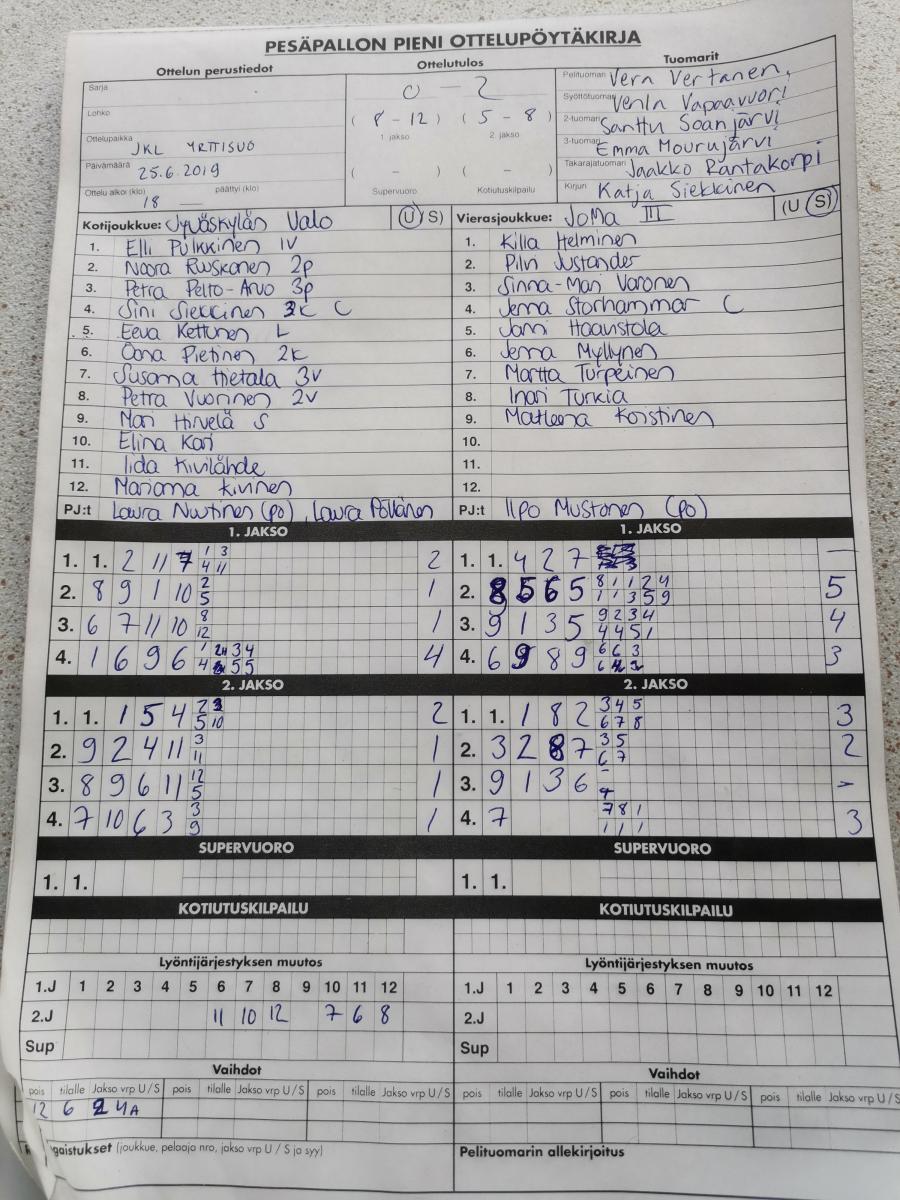 PESÄPALLON PIENI OTTELUPÖYTÄKIRJA
Ottelun perustiedot
Ottelutulos
Tuomarit
Sarja
Lohko
Ottelupaikka JKL YRTTISUO
Päivämäärä 25.6.2019
Ottelu alkoi (klo) 18 päättyi (klo)
0 - 2
( 8 - 12 ) ( 5 - 8 )
1 jakso 2. jakso
( - ) ( - )
Supervuoro Kotiutuskilpailu
Pelituomari Vera Vertanen,
Syöttötuomari Venla Vapaavuori
2-tuomari Santtu Soanjärvi
3-tuomari Emma Mourujärvi
Takarajatuomari Jaakko Rantakorpi
Kirjuri Katja Siekkinen
Kotijoukkue: Jyväskylän Valo (U S)
1. Elli Pulkkinen 1V
2. Noora Ruuskanen 2p
3. Petra Pelto-Arvo 3p
4. Sini Siekkinen 3K C
5. Eeva Kettunen L
6. Oona Pietinen 2K
7. Susanna Hietala 3V
8. Petra Vuorinen 2V
9. Mari Hirvelä S
10. Elina Kari
11. Iida Kivilähde
12. Marianna Kivinen
PJ:t Laura Nuutinen (po), Laura Pölänen
Vierasjoukkue: JoMa III (U S)
1. Killa Helminen
2. Pilvi Justander
3. Sinna-Mari Varonen
4. Jenna Storhammar C
5. Janni Haaustola
6. Jenna Myllynen
7. Martta Turpeinen
8. Inari Turkia
9. Matleena Koistinen
10.
11.
12.
PJ:t Ilpo Mustonen (po)
1. JAKSO
1. 1. 2 11 7 1 3 2
4 11
2. 8 9 1 10 2 1
5
3. 6 7 11 10 8 1
12
4. 1 6 9 6 1 3 4 4
4 5 5
1. JAKSO
1. 1. 4 2 7 —
2. 8 5 6 5 8 1 1 2 4 5
1 1 3 5 9
3. 9 1 3 5 9 2 3 4 4
4 4 5 1
4. 6 9 8 9 6 6 3 3
2. JAKSO
1. 1. 1 5 4 2 3 2
5 10
2. 9 2 4 11 3 1
11
3. 8 9 6 11 12 1
5
4. 7 10 6 3 3 1
9
2. JAKSO
1. 1. 1 8 2 3 4 5 3
6 7 8
2. 3 2 8 7 3 5 2
6 7
3. 9 1 3 6 - -
4. 7 7 8 1 3
1 1 1
SUPERVUORO
1. 1.
SUPERVUORO
1. 1.
KOTIUTUSKILPAILU
KOTIUTUSKILPAILU
Lyöntijärjestyksen muutos
1.J 1 2 3 4 5 6 7 8 9 10 11 12
2.J 11 10 12 7 6 8
Sup
Lyöntijärjestyksen muutos
1.J 1 2 3 4 5 6 7 8 9 10 11 12
2.J
Sup
Vaihdot
pois tilalle Jakso vrp U / S pois tilalle Jakso vrp U / S pois tilalle Jakso vrp U / S
12 6 2 4A
Vaihdot
pois tilalle Jakso vrp U / S pois tilalle Jakso vrp U / S pois tilalle Jakso vrp U / S
gaistukset (joukkue, pelaaja nro, jakso vrp U / S ja syy)
Pelituomarin allekirjoitus